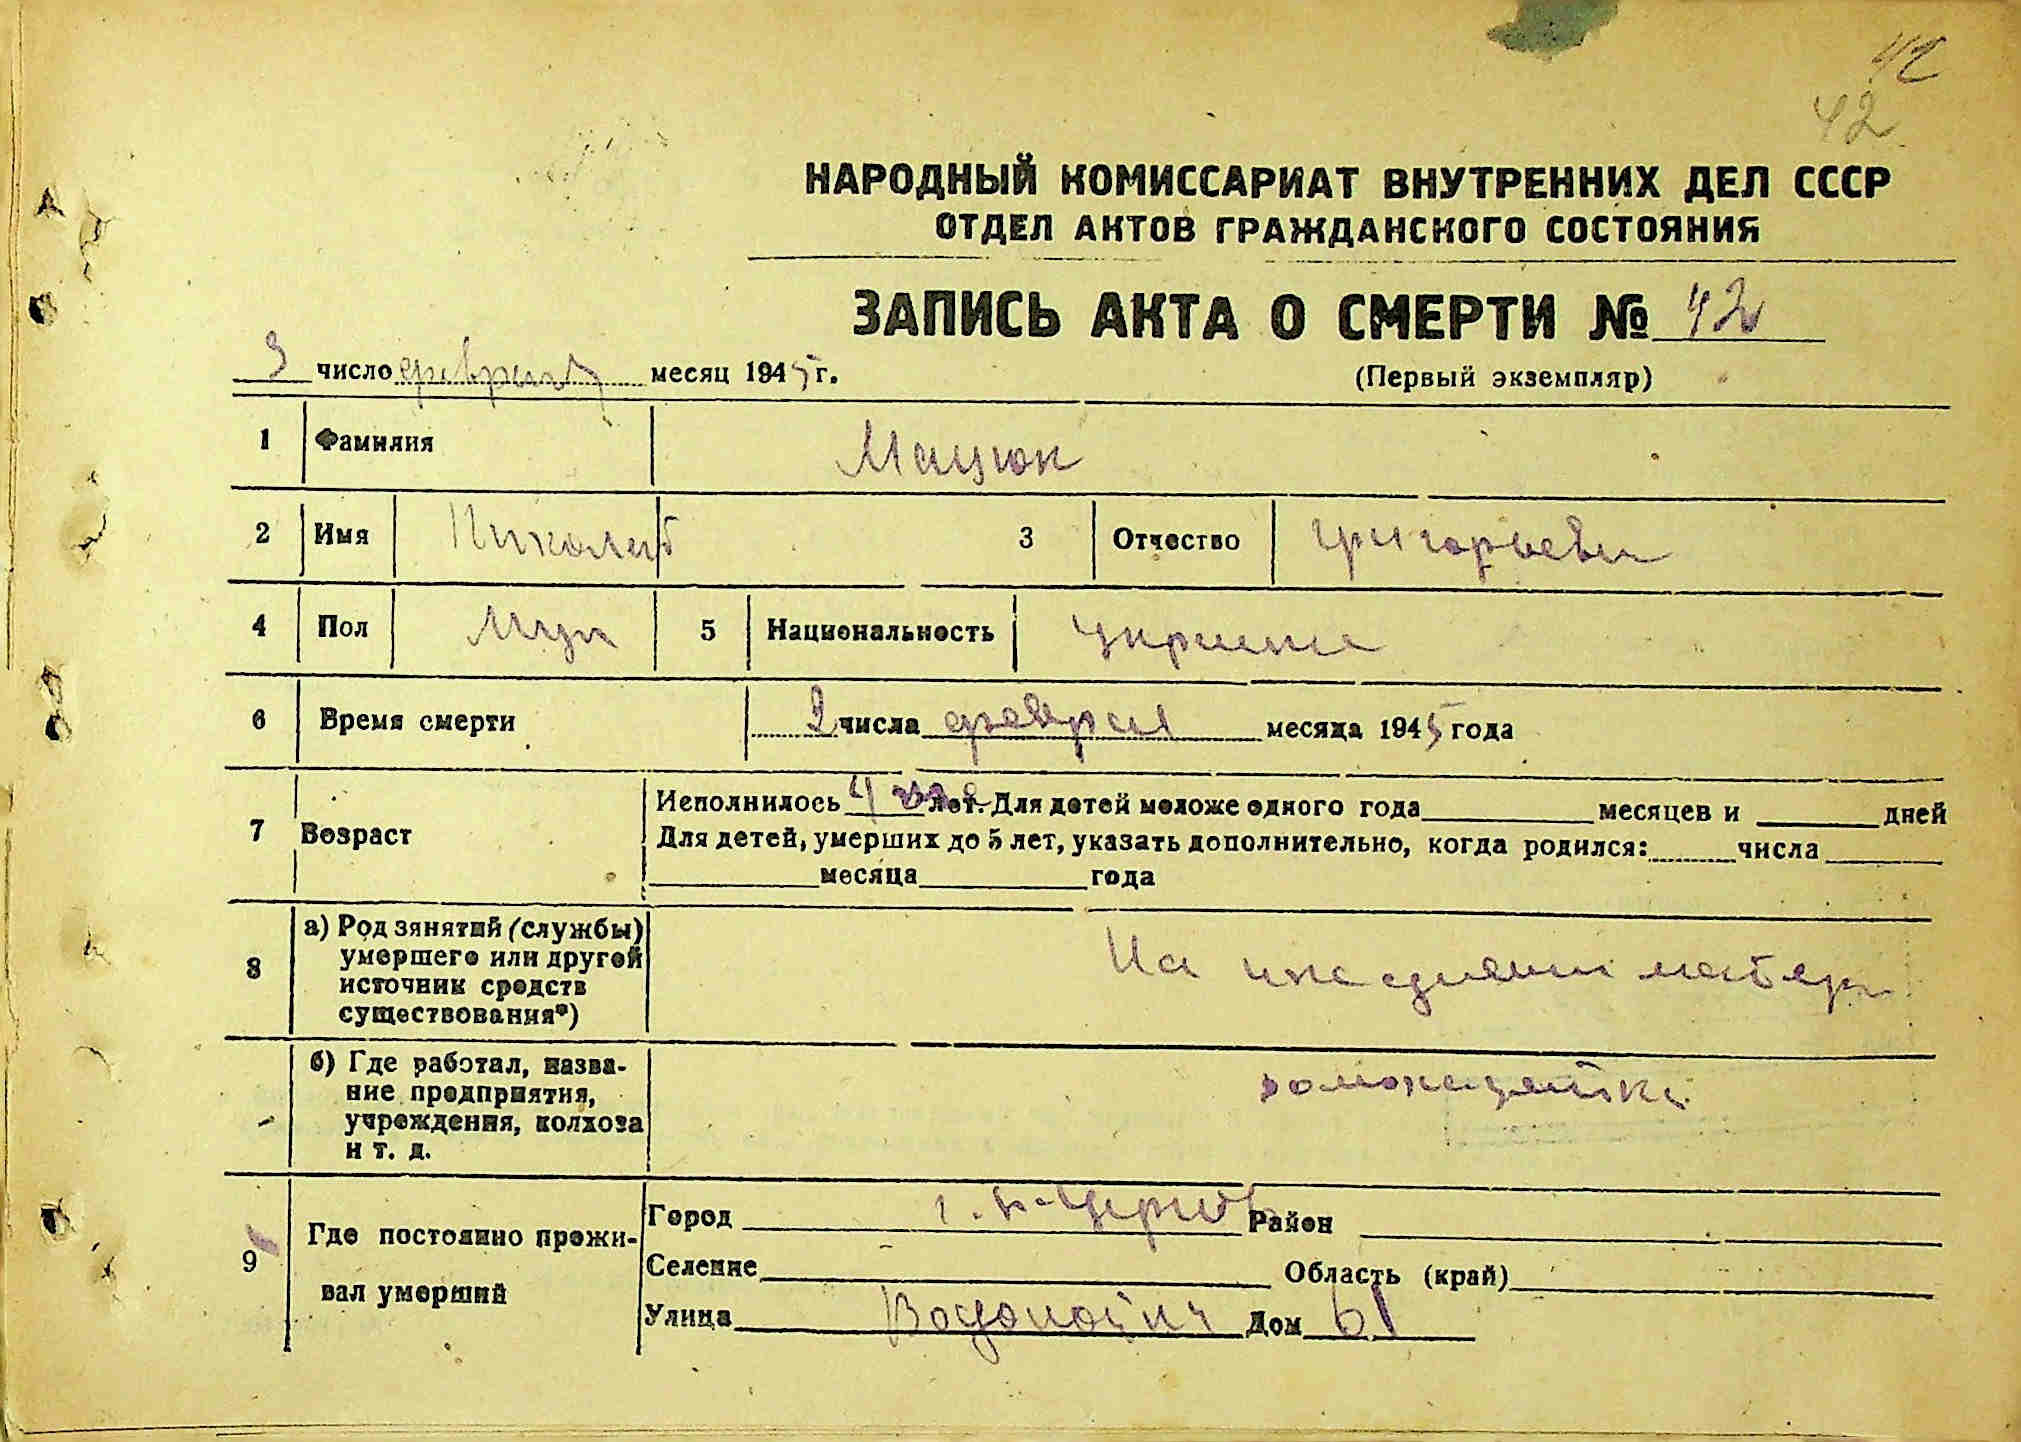 42
42
НАРОДНЫЙ КОМИССАРИАТ ВНУТРЕННИХ ДЕЛ СССР
ОТДЕЛ АКТОВ ГРАЖДАНСКОГО СОСТОЯНИЯ
ЗАПИСЬ АКТА О СМЕРТИ № 42
3 число февраля месяц 1945 г.
(Первый экземпляр)
1 Фамилия Мацюк
2 Имя Николай 3 Отчество Григорьеви
4 Пол Муж 5 Национальность Украине
6 Время смерти 2 числа феврал месяца 1945 года
7 Возраст Исполнилось 4 лет. Для детей моложе одного года месяцев и дней
Для детей, умерших до 5 лет, указать дополнительно, когда родился: числа
месяца года
8 а) Род занятий (службы) умершего или другой источник средств существования*) На иждивении матери
б) Где работал, название предприятия, учреждения, колхоза и т. д. домохозяйка
9 Где постоянно проживал умерший
Город г. Б-Церковь Район
Селение Область (край)
Улица Дом 61